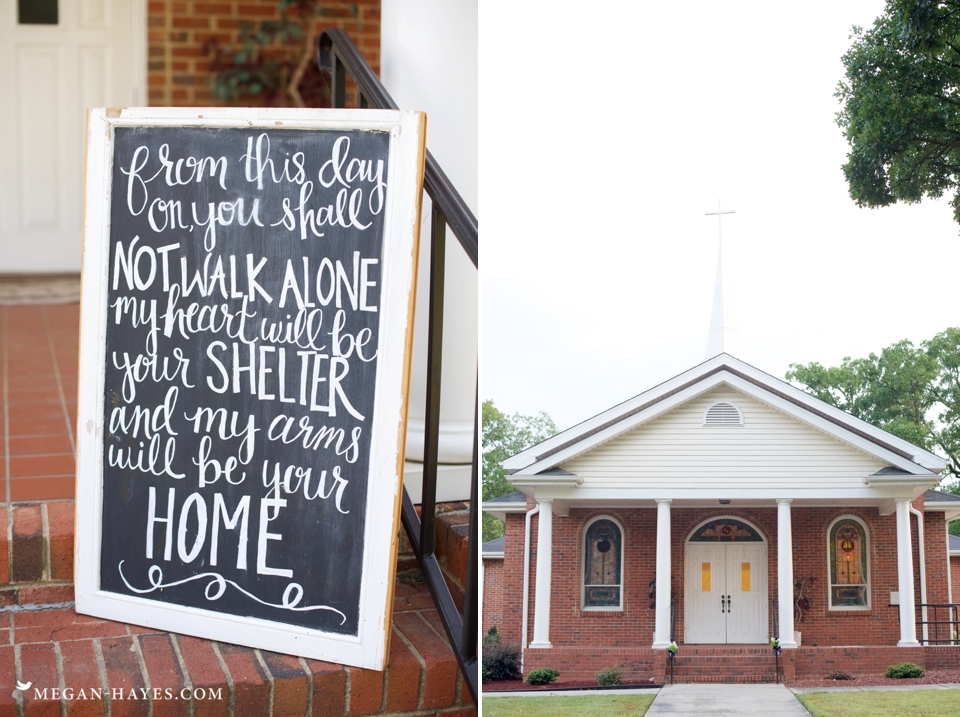 from this day
on, you shall
NOT WALK ALONE
my heart will be
your SHELTER
and my arms
will be your
HOME
MEGAN-HAYES.COM